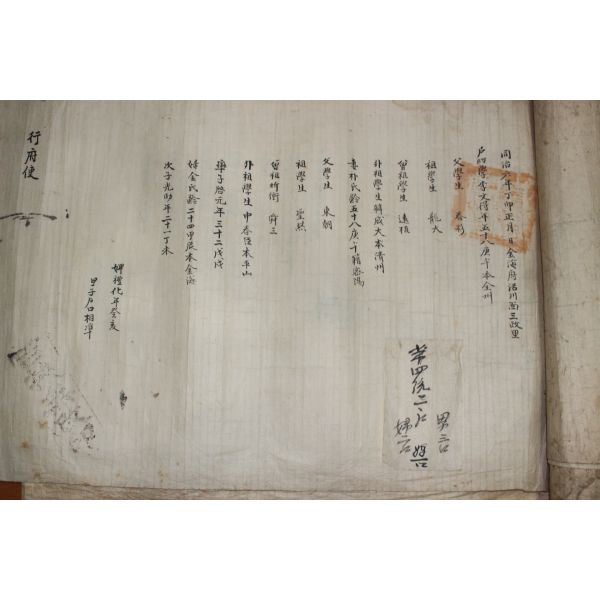 同治六年丁卯正月 日金海府活川面三政里
戶幼學李文得年五十八庚午本全州
父學生 春彩
祖學生 龍大
曾祖學生 達植
外祖學生韓成大本淸州
妻朴氏齡五十八庚午籍密陽
父學生 東朝
祖學生 聖然
曾祖折衝 舜三
外祖學生 申春臣本平山
率子啓元年三十二戊戌
婦金氏齡二十四甲辰本金海
次子光昉年二十一丁未
婢禮化年癸亥
甲子戶口相準
行府使
第四統二戶
男三口
婦二口